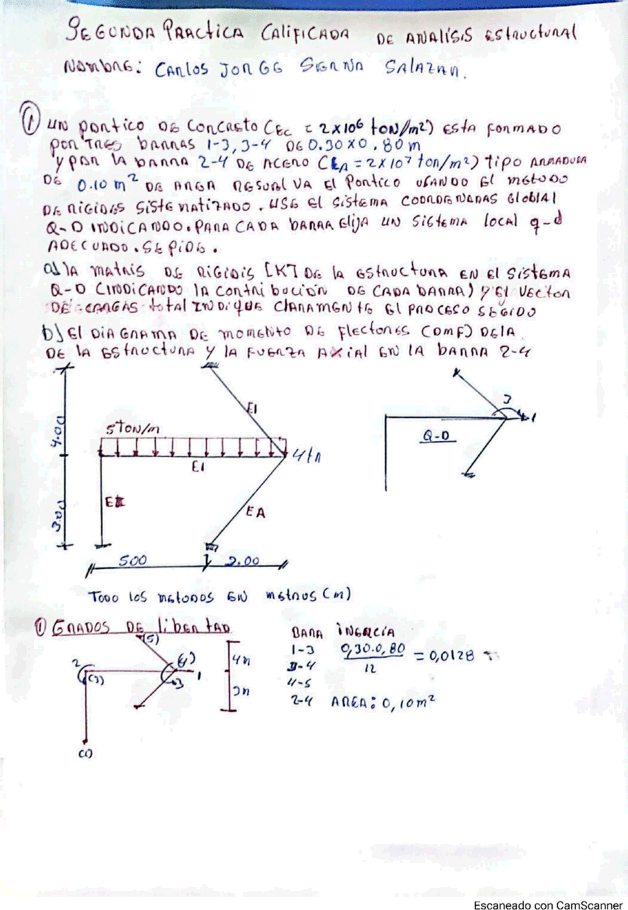 SEGUNDA PRACTICA CALIFICADA DE ANALISIS ESTRUCTURAL
NOMBRE: CARLOS JORGE SERNA SALAZAR.
① UN PORTICO DE CONCRETO (EC = 2x10⁶ ton/m²) ESTA FORMADO
POR TRES BARRAS 1-3, 3-4 DE 0.30x0.80m
Y POR LA BARRA 2-4 DE ACERO (EA = 2x10⁷ ton/m²) TIPO ARMADURA
DE 0.10 m² DE AREA RESUALVA EL PORTICO USANDO EL METODO
DE RIGIDES SISTEMATIZADO. USE EL SISTEMA COORDENADAS GLOBIAL
Q-D INDICANDO. PARA CADA BARRA ELIJA UN SISTEMA LOCAL q-d
ADECUADO. SE PIDE.
a) LA MATRIS DE RIGIDIS [K] DE LA ESTRUCTURA EN EL SISTEMA
Q-D (INDICANDO LA CONTRIBUCION DE CADA BARRA) Y EL VECTOR
DE CARGAS TOTAL INDIQUE CLARAMENTE EL PROCESO SEGIDO
b) EL DIAGRAMA DE MOMENTO DE FLECTORES (DMF) DE LA
DE LA ESTRUCTURA Y LA FUERZA AXIAL EN LA BARRA 2-4
4.00
3.00
5 TON/m
EI
EI
EI
EA
4tn
500
2.00
3
1
Q-D
TODO LOS METODOS EN METROS (m)
① GRADOS DE LIBERTAD
(5)
2
(3)
(4)
3
1
(1)
4m
3m
BARA INERCIA
1-3 0,30.0,80 / 12 = 0,0128
3-4
4-5
2-4 AREA: 0,10m²
Escaneado con CamScanner